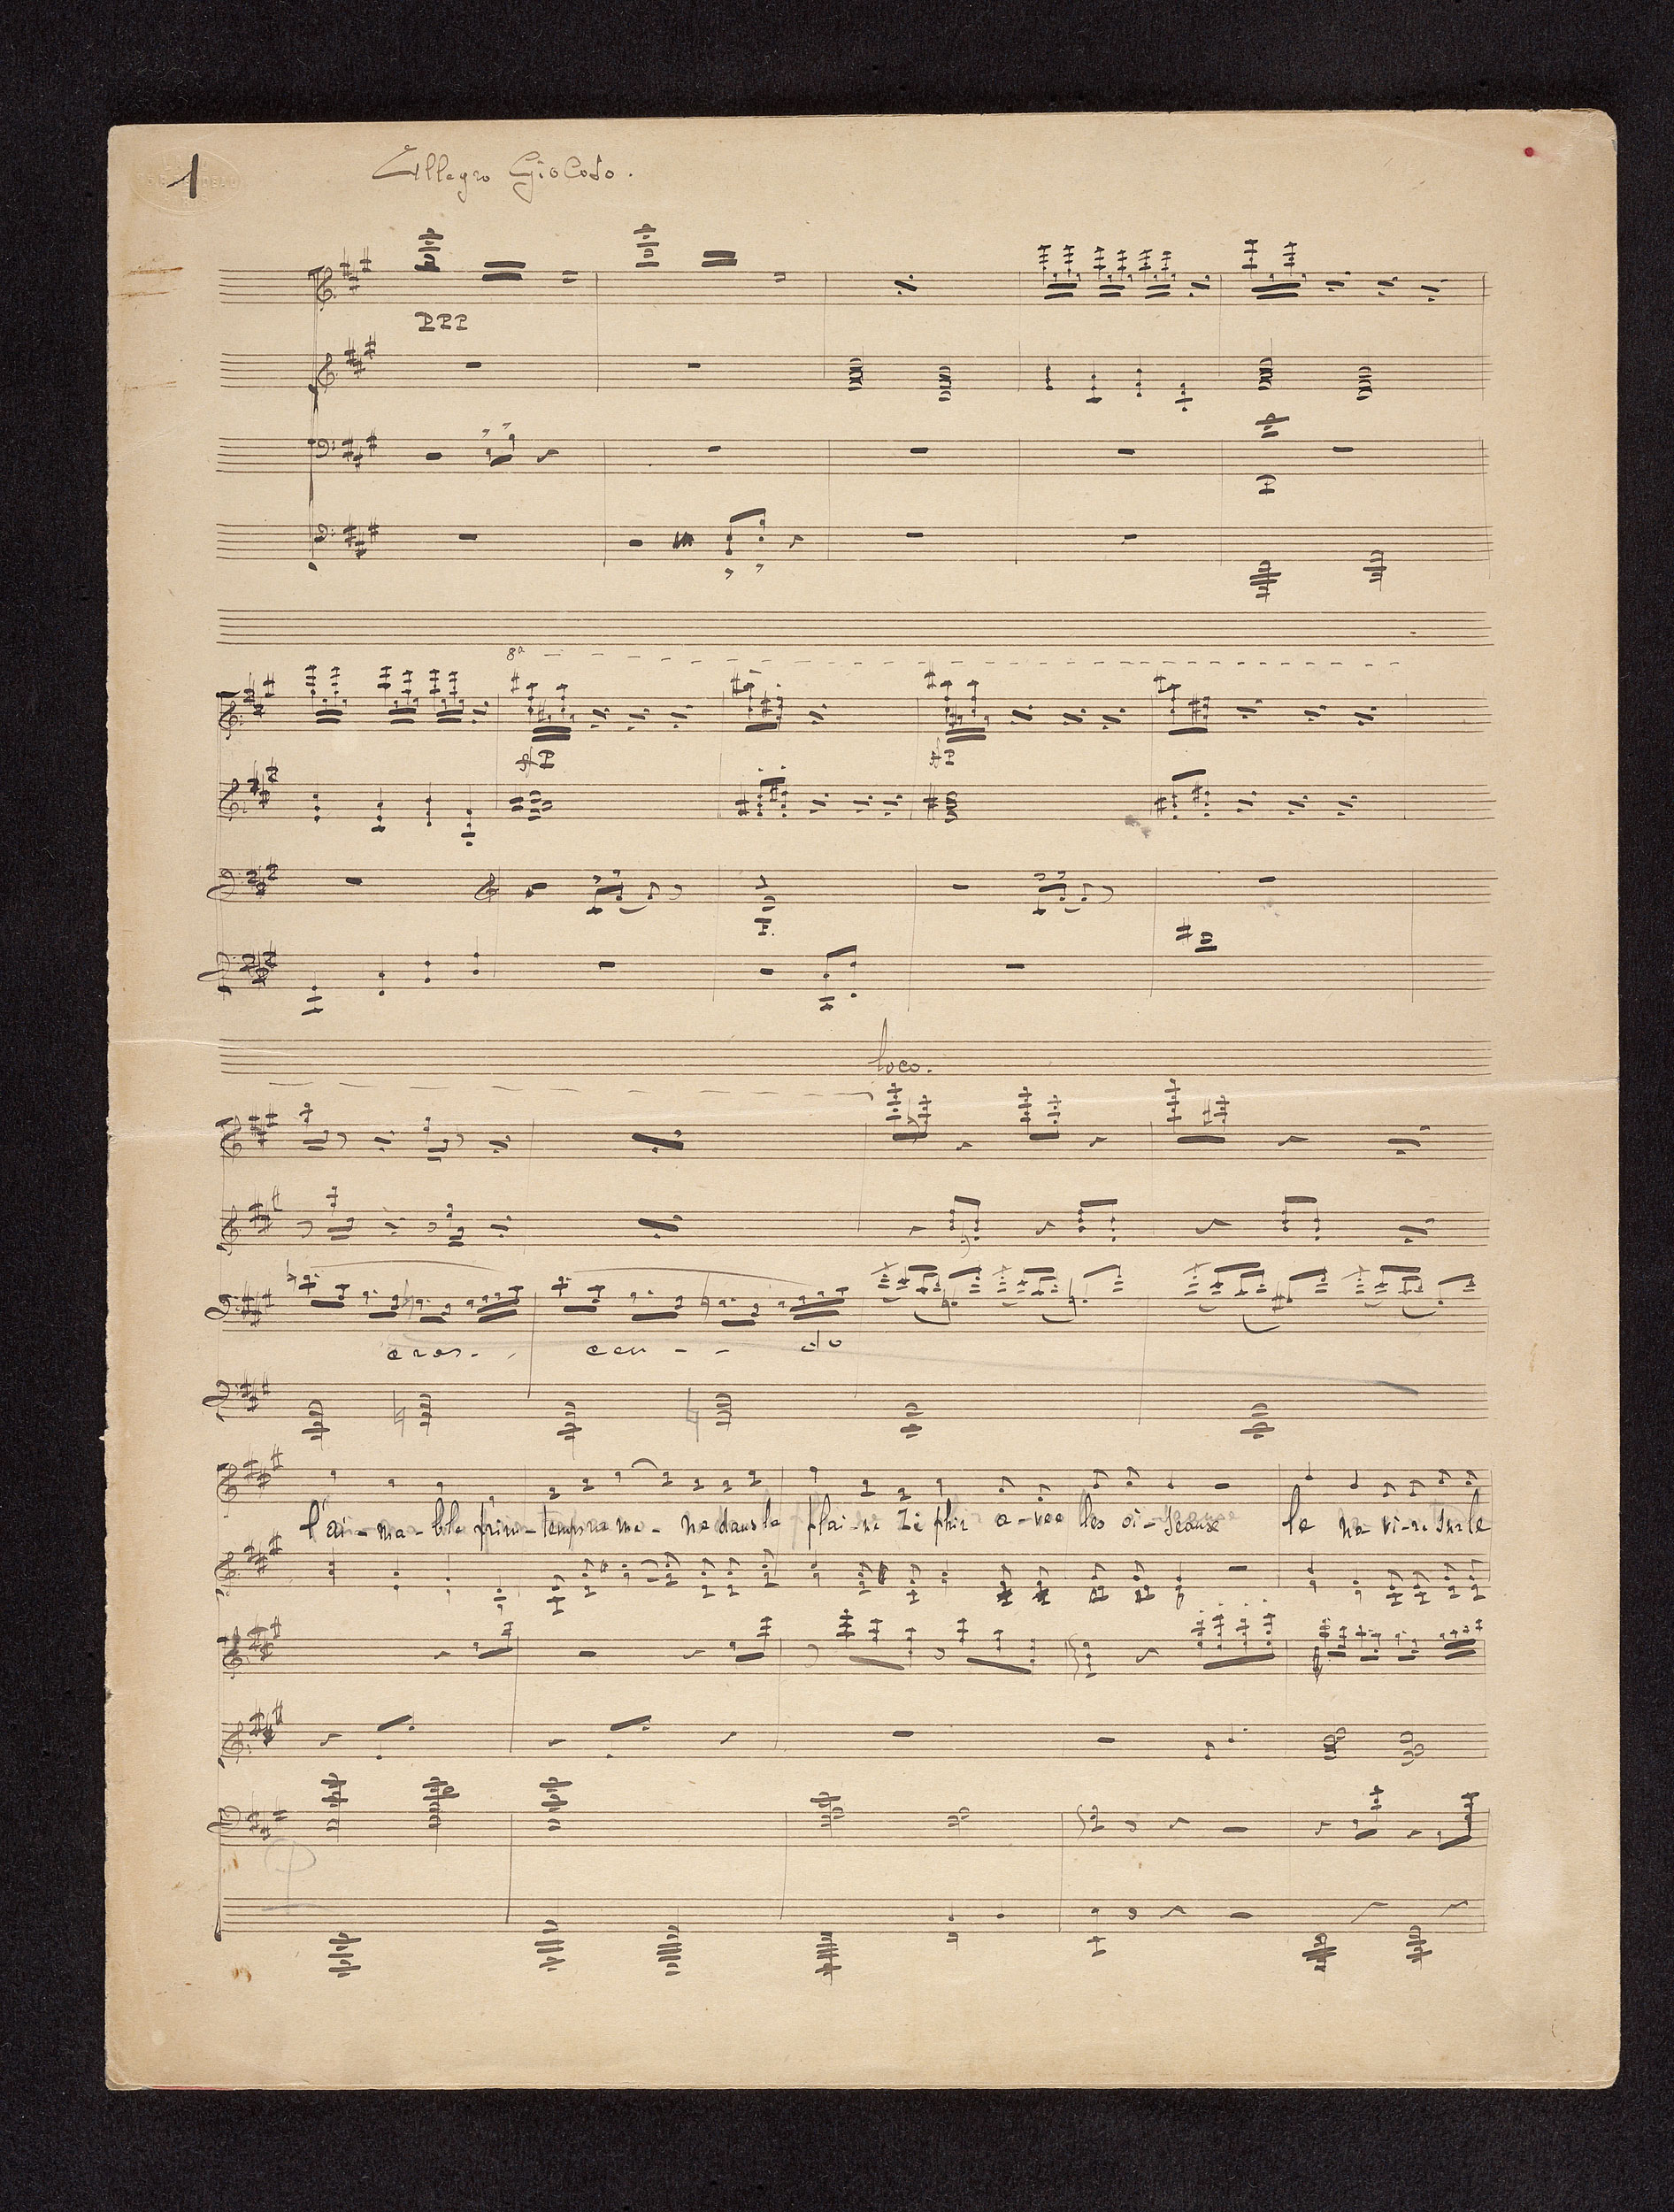 1
Allegro Giocoso.
PPP
8a
P
P
loco.
cres - cen - - do
l'ai - ma - ble prin - temps ra me - ne dans la plai - ne Zé phir a - vec les oi - seaux le na vi - re sur le